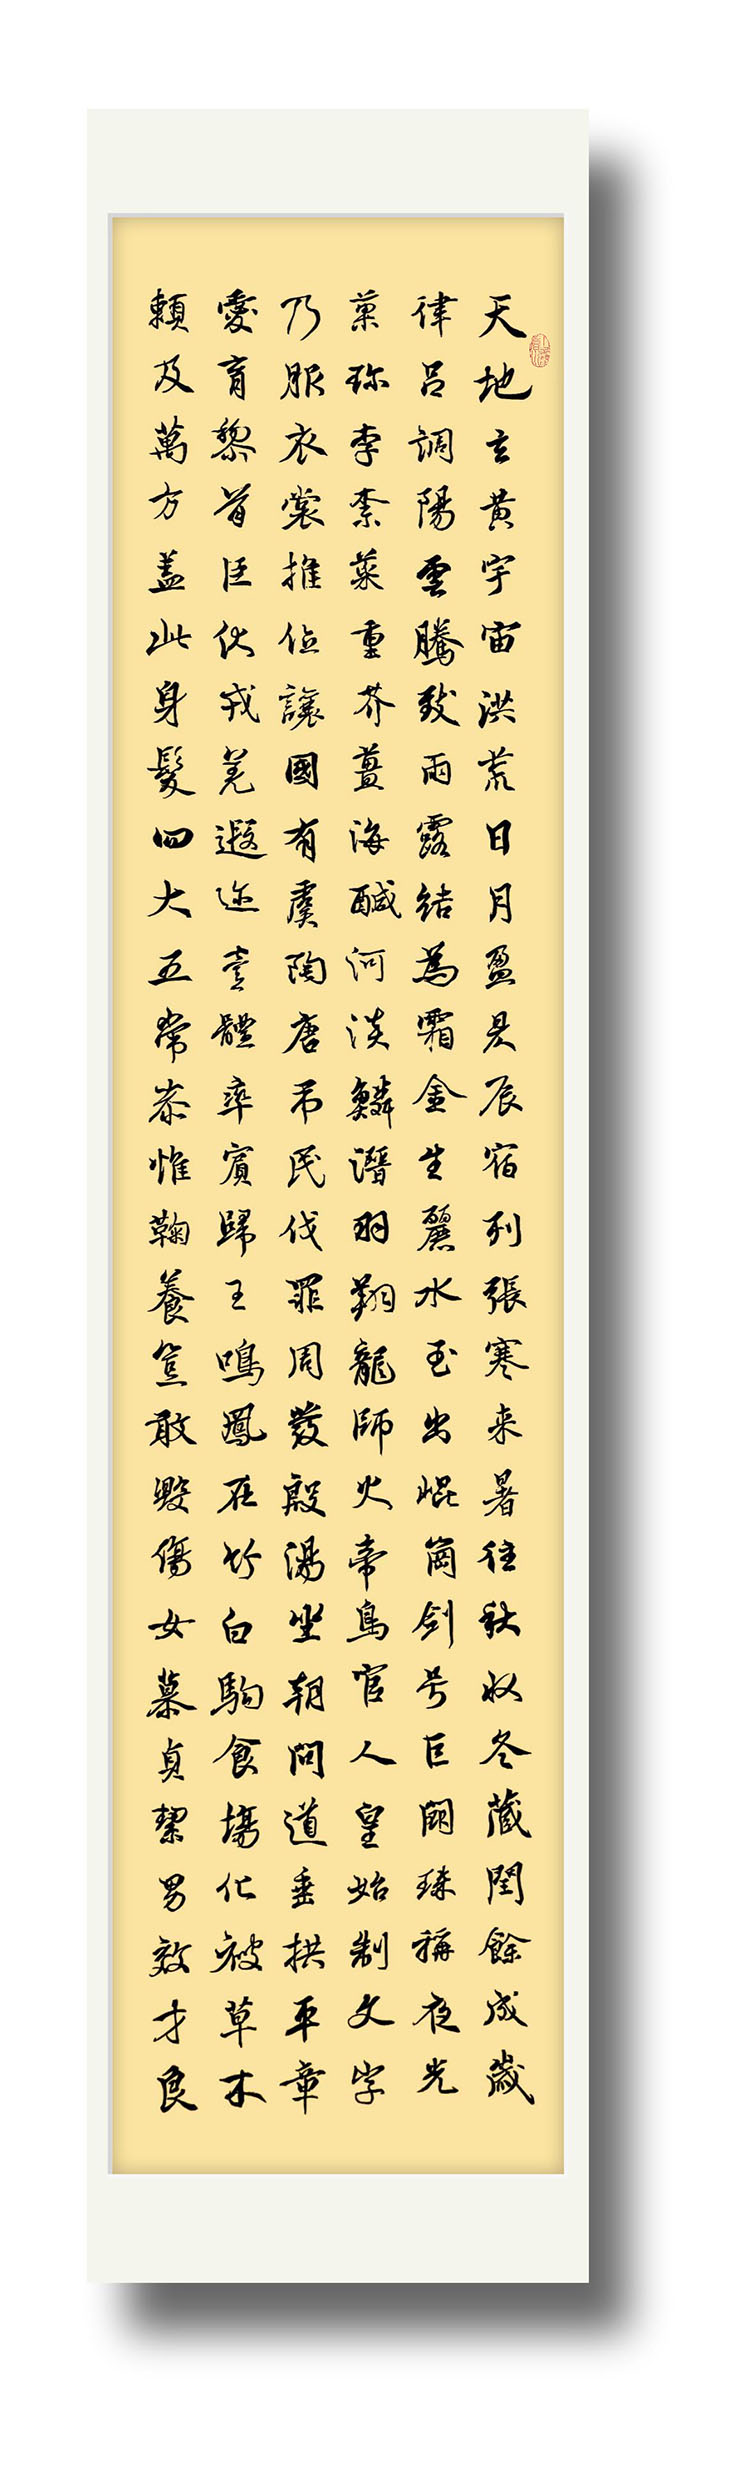 天地玄黄宇宙洪荒日月盈昃辰宿列張寒来暑往秋收冬藏閏餘成歲
律呂調陽雲騰致雨露結為霜金生麗水玉出崐崗剑号巨闕珠稱夜光
菓珎李柰菜重芥薑海醎河淡鱗潛羽翔龍師火帝鳥官人皇始制文字
乃服衣裳推位讓國有虞陶唐吊民伐罪周發殷湯坐朝問道垂拱平章
愛育黎首臣伏戎羌遐迩壹體率賓歸王鳴鳳在竹白駒食場化被草木
賴及萬方盖此身髮四大五常恭惟鞠養豈敢毀傷女慕貞絜男效才良